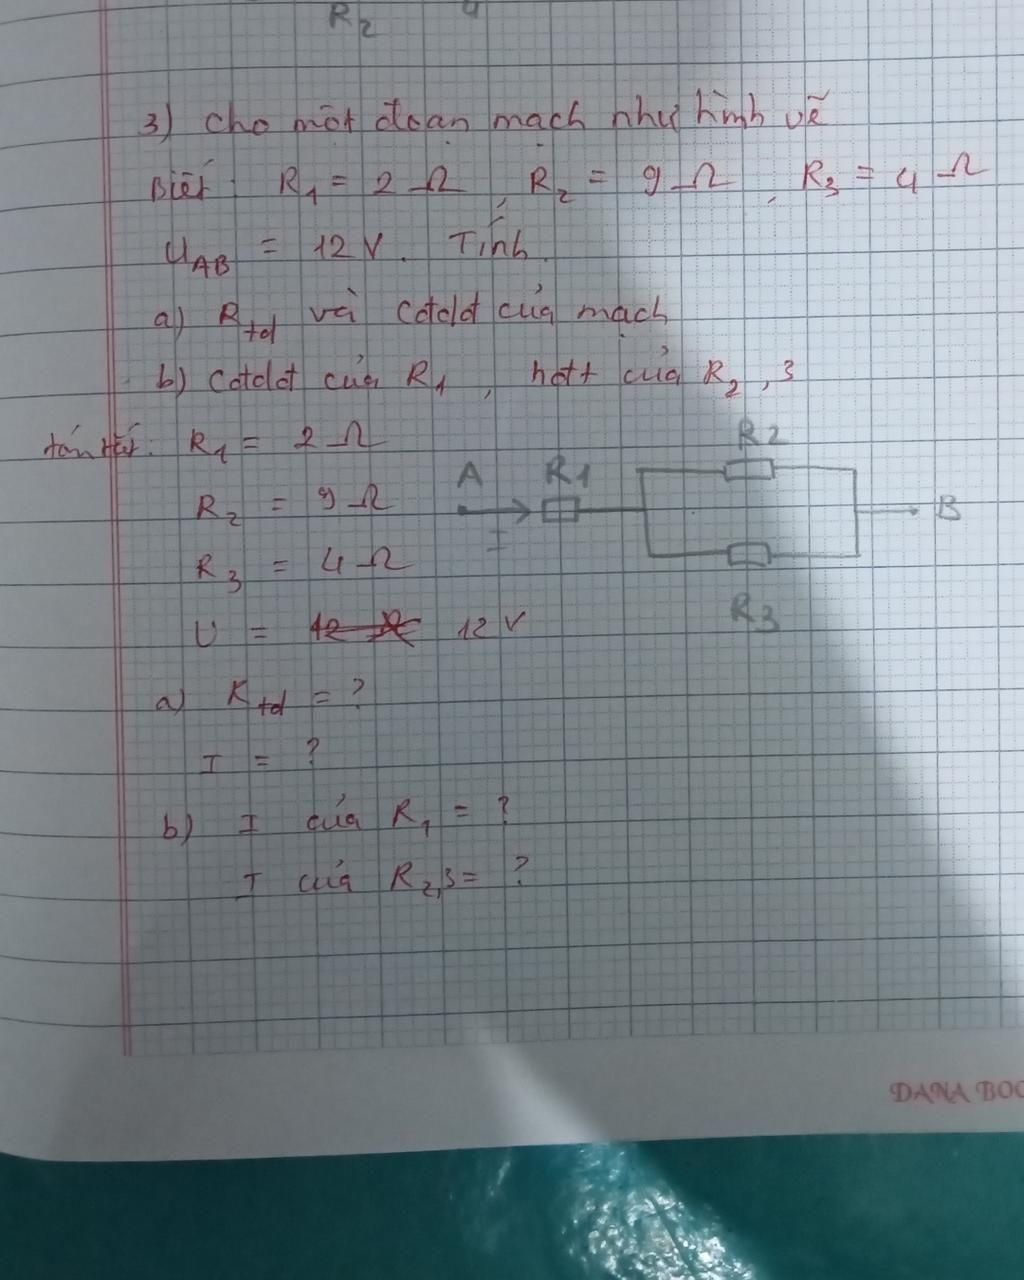 R2
3) Cho một đoạn mạch như hình vẽ
Biết: R1 = 2 Ω, R2 = 9 Ω, R3 = 4 Ω
UAB = 12 V. Tính
a) Rtd và cđdđ của mạch
b) cđdđ của R1, hđt của R2,3
tóm tắt: R1 = 2 Ω
R2 = 9 Ω
R3 = 4 Ω
U = 12 V
a) Rtd = ?
I = ?
b) I của R1 = ?
I của R2,3 = ?
R2
A R1
I
B
R3
DANA BOO